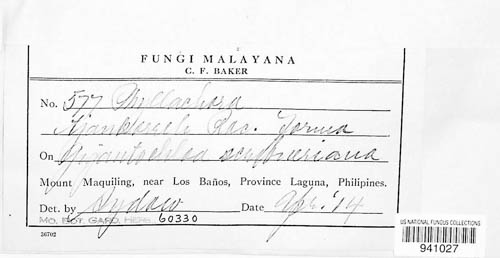 FUNGI MALAYANA
C. F. BAKER
No. 577 Phyllachora
Tjankorreh Rac. Forma
On Gigantochloa scribneriana
Mount Maquiling, near Los Baños, Province Laguna, Philipines.
Det. by Sydow Date Apr. '14
MO. BOT. GARD. HERB. 60330
26702
US NATIONAL FUNGUS COLLECTIONS
941027